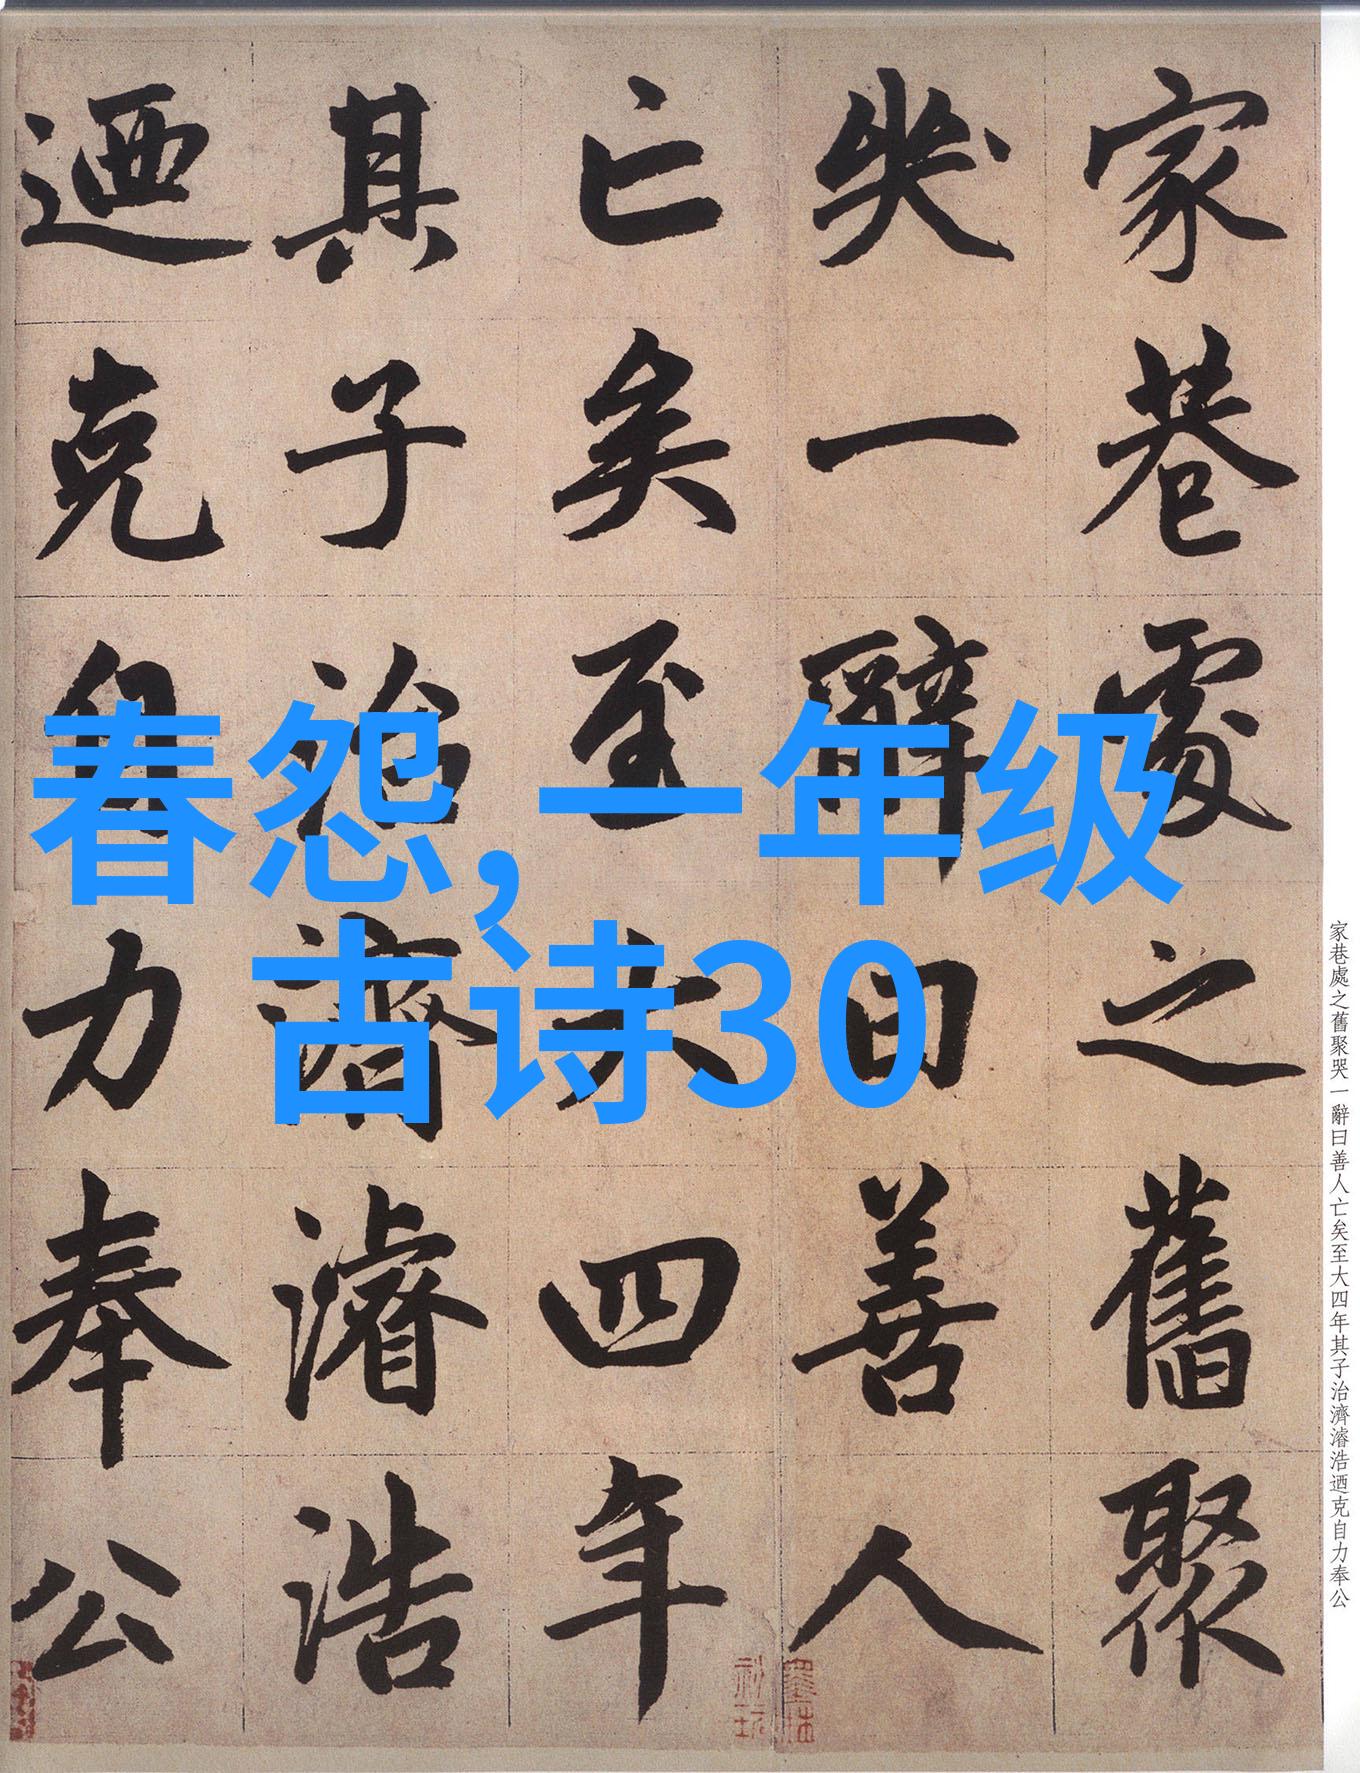 春怨,一年级
古诗30
家巷處之舊聚
哭一辭曰善人
亡矣至大四年
其子治濟濬浩
迺克自力奉公
家巷處之舊聚哭一辭曰善人亡矣至大四年其子治濟濬浩迺克自力奉公